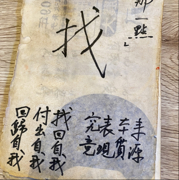 那一點」
找
來源
本質
表現
究竟
找回自我
付出自我
回歸自我